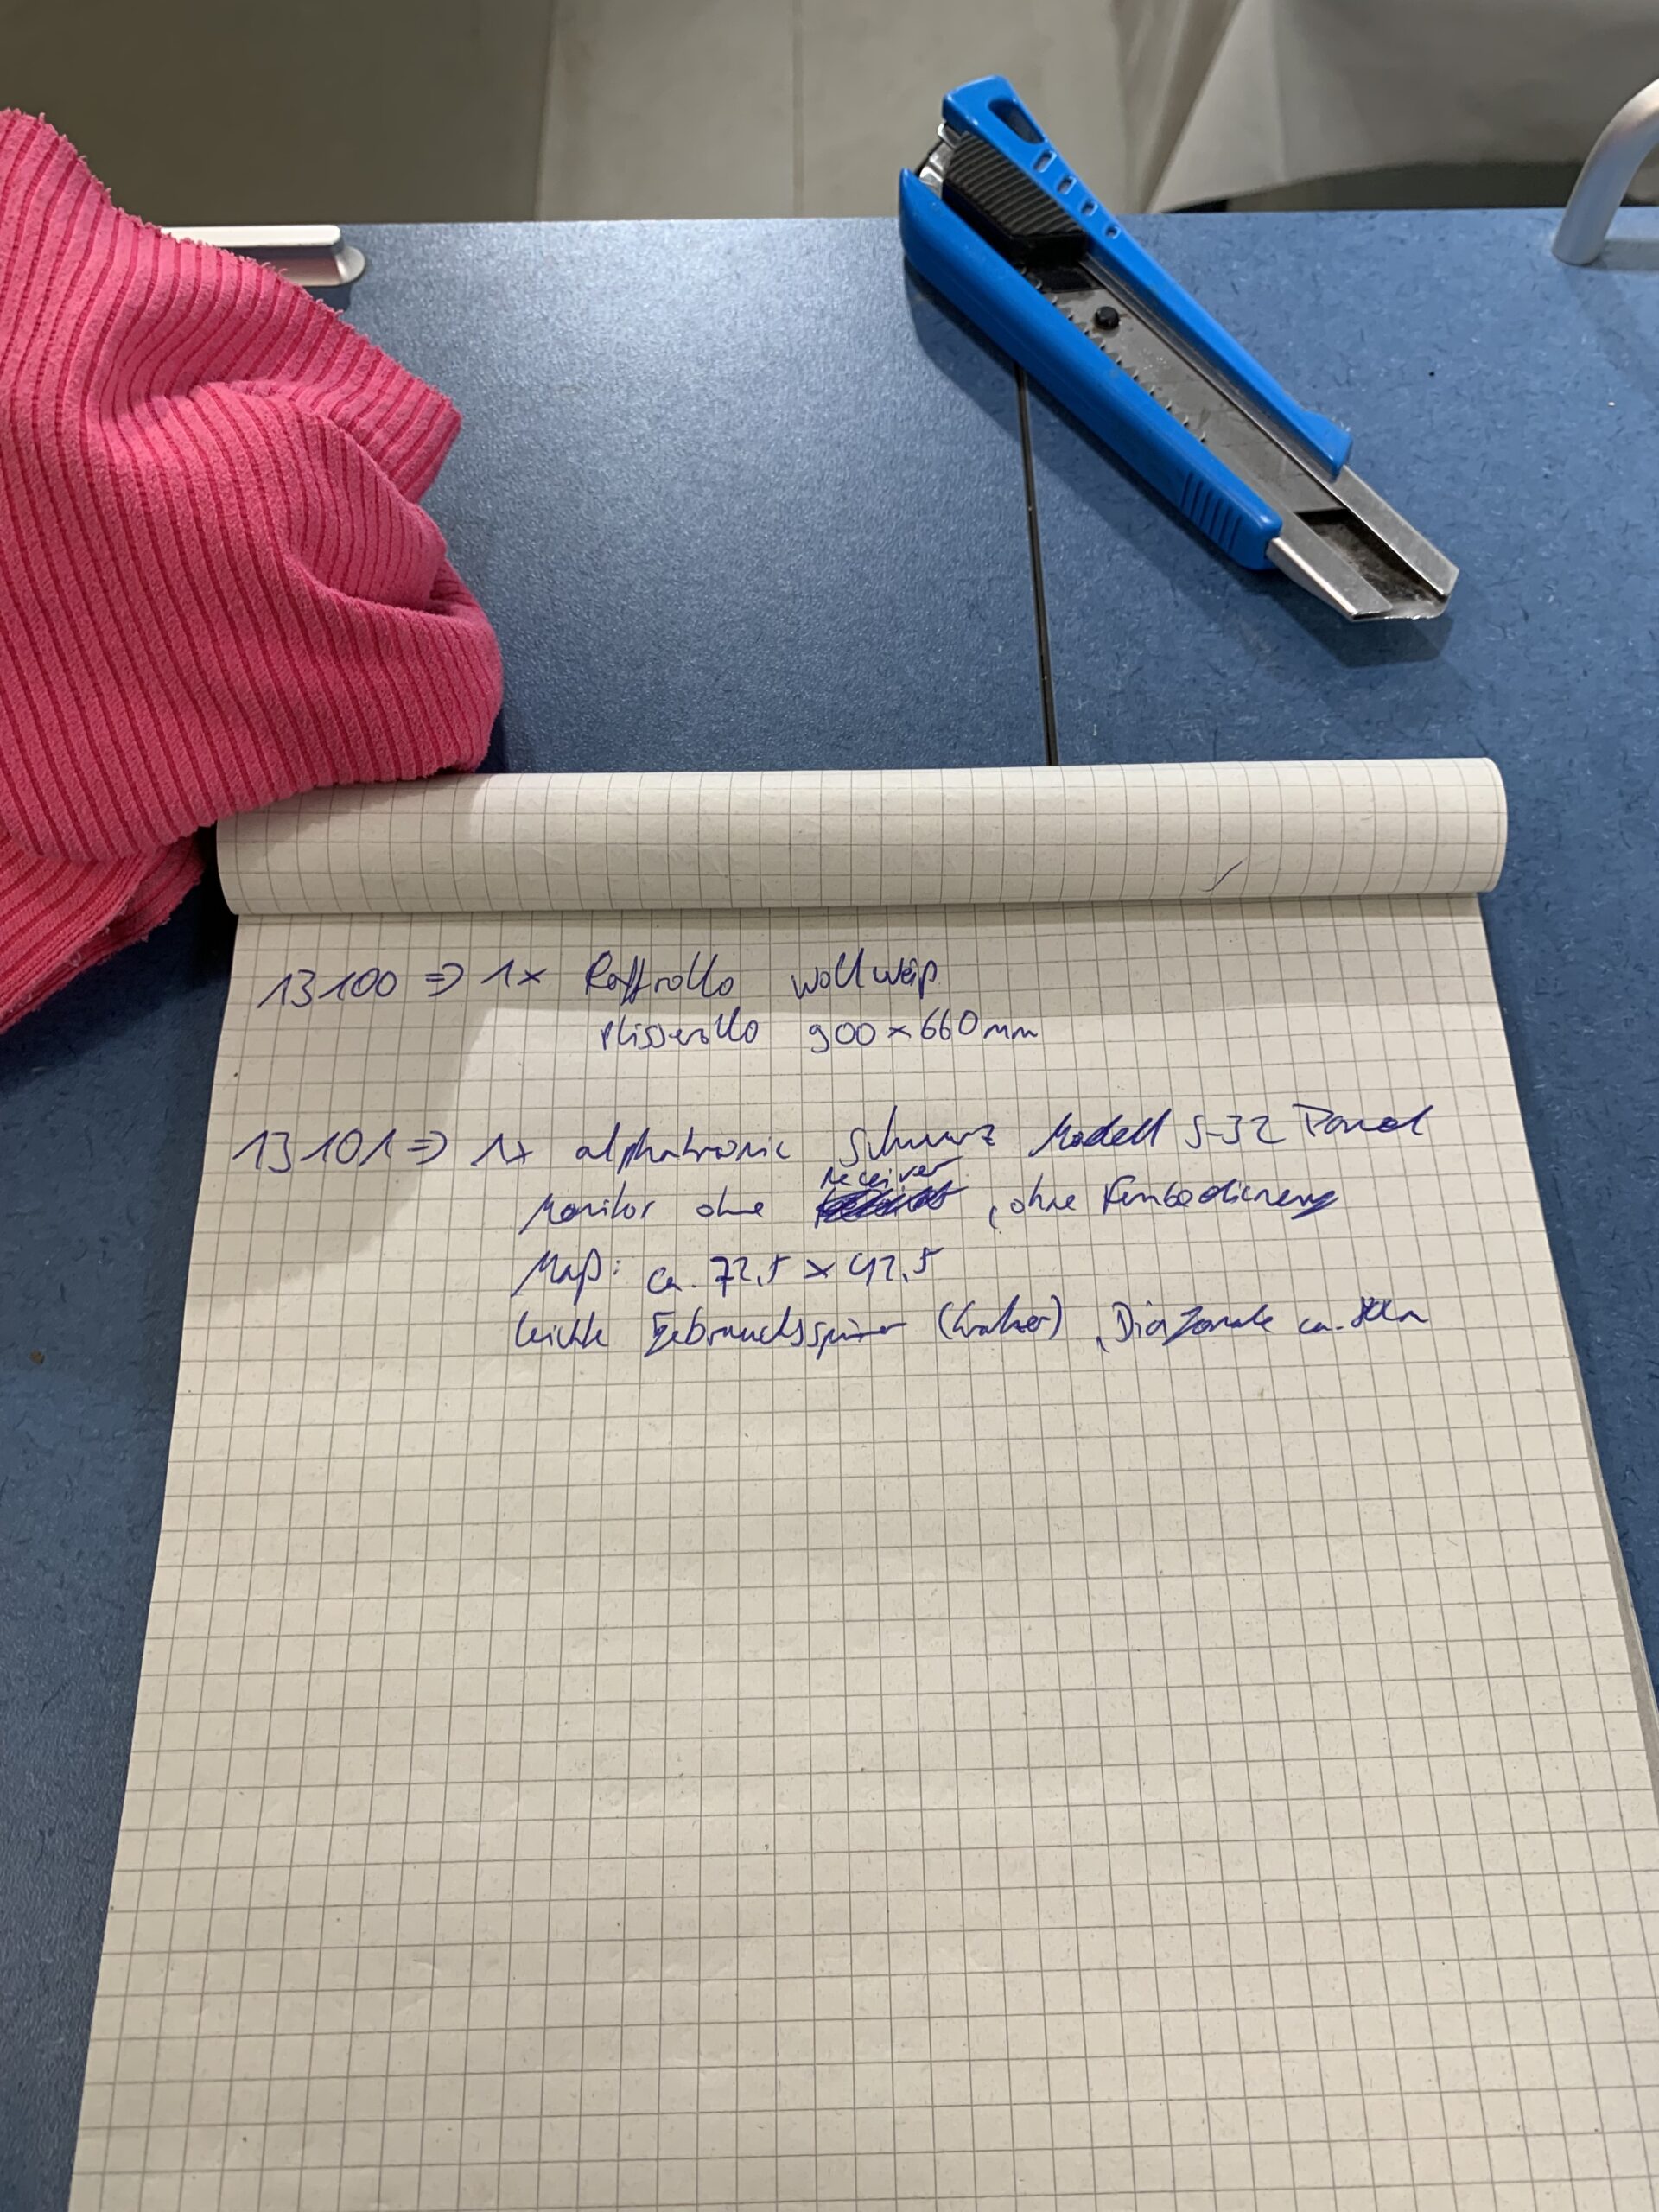 13100 => 1x Raffrollo wollweiß
Plisserollo 900 x 660mm
13101 => 1x alphatronic schwarz Modell S-32
receiver
Monitor ohne , ohne Fernbedienung
Maß: ca. 72,5 x 42,5
leichte Gebrauchsspuren (Kratzer), Diagonale ca.